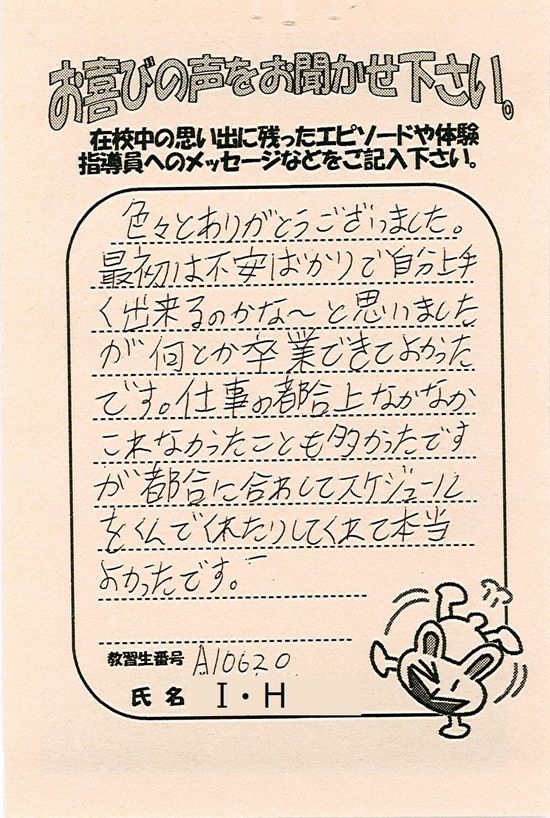 お喜びの声をお聞かせ下さい。
在校中の思い出に残ったエピソードや体験
指導員へのメッセージなどをご記入下さい。
色々とありがとうございました。
最初は不安ばかりで自分上手
く出来るのかな〜と思いました
が何とか卒業できてよかった
です。仕事の都合上なかなか
これなかったことも多かったです
が都合に合わしてスケジュール
をくんでくれたりしてくれて本当
よかったです。
教習生番号 A10620
氏名 I・H